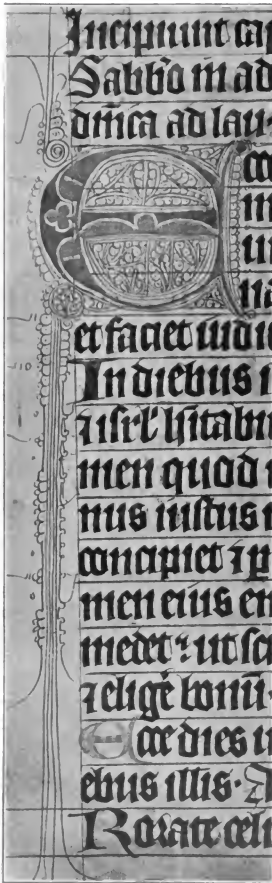 Incipiunt ca
Sabbo in ad
dnica ad lau
Ecce
et faciet iudi
In diebus i
⁊ isrl' hitabi
men quod
nus iustus
concipiet ⁊ p
men eius em
⁊ ut sci
⁊ eligē bonū
Ecce dies
ebus illis·
Rorate celi